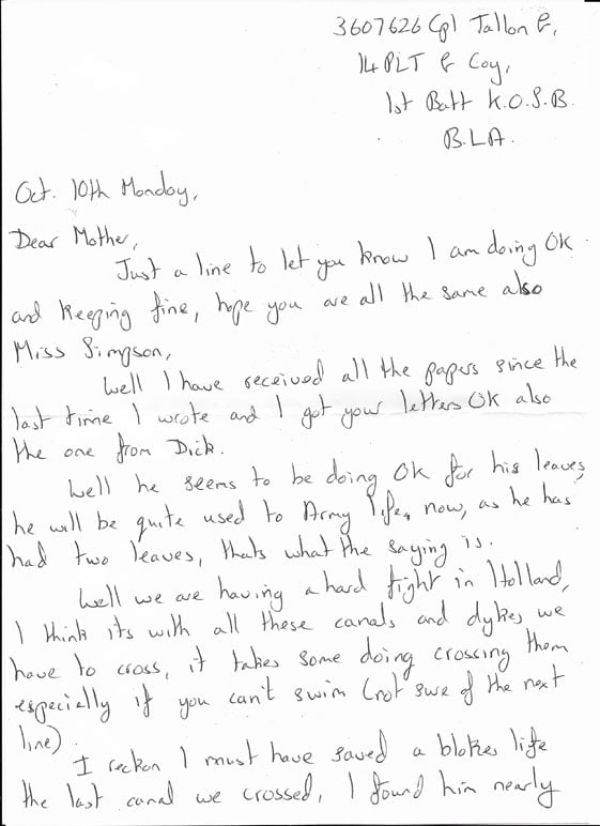 3607626 Cpl Tallon E,
14 PLT E Coy,
1st Batt K.O.S.B.
B.L.A.
Oct. 10th Monday,
Dear Mother,
Just a line to let you know I am doing OK
and keeping fine, hope you are all the same also
Miss Simpson,
Well I have received all the papers since the
last time I wrote and I got your letters OK also
the one from Dick.
Well he seems to be doing OK for his leaves,
he will be quite used to Army life, now, as he has
had two leaves, thats what the saying is.
Well we are having a hard fight in Holland,
I think its with all these canals and dykes we
have to cross, it takes some doing crossing them
especially if you can't swim (not swe of the next
line).
I reckon I must have saved a blokes life
the last canal we crossed, I found him nearly